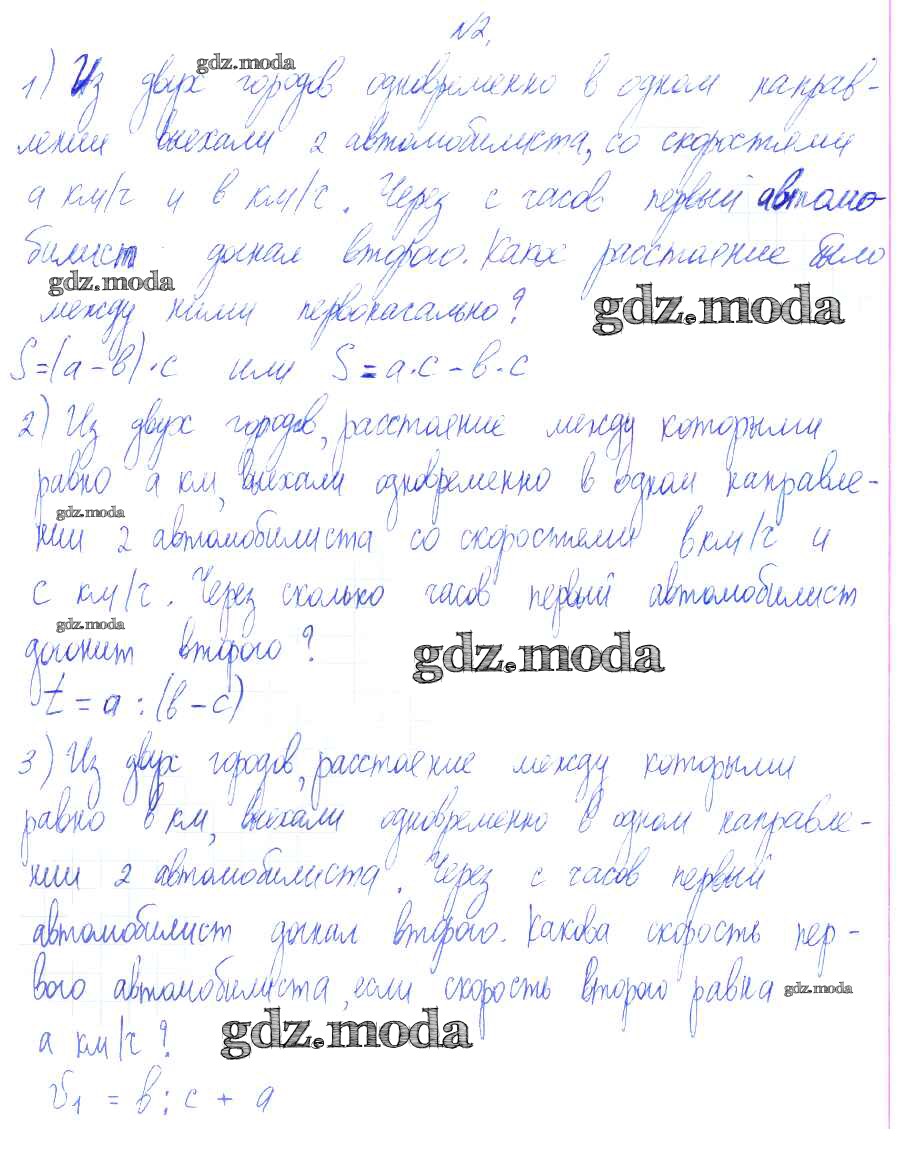 №2.
gdz.moda
1) Из двух городов одновременно в одном направ-
лении выехали 2 автомобилиста, со скоростями
а км/ч и в км/ч. Через с часов первый автомо-
билист догнал второго. Какое расстояние было
gdz.moda
между ними первоначально?
gdz.moda
S=(а-в)·с или S=а·с-в·с
2) Из двух городов, расстояние между которыми
равно а км, выехали одновременно в одном направле-
gdz.moda
нии 2 автомобилиста со скоростями в км/ч и
с км/ч. Через сколько часов первый автомобилист
gdz.moda
догонит второго?
gdz.moda
t=а:(в-с)
3) Из двух городов, расстояние между которыми
равно в км, выехали одновременно в одном направле-
нии 2 автомобилиста. Через с часов первый
автомобилист догнал второго. Какова скорость пер-
вого автомобилиста, если скорость второго равна
gdz.moda
а км/ч?
gdz.moda
V1 = в:с + а